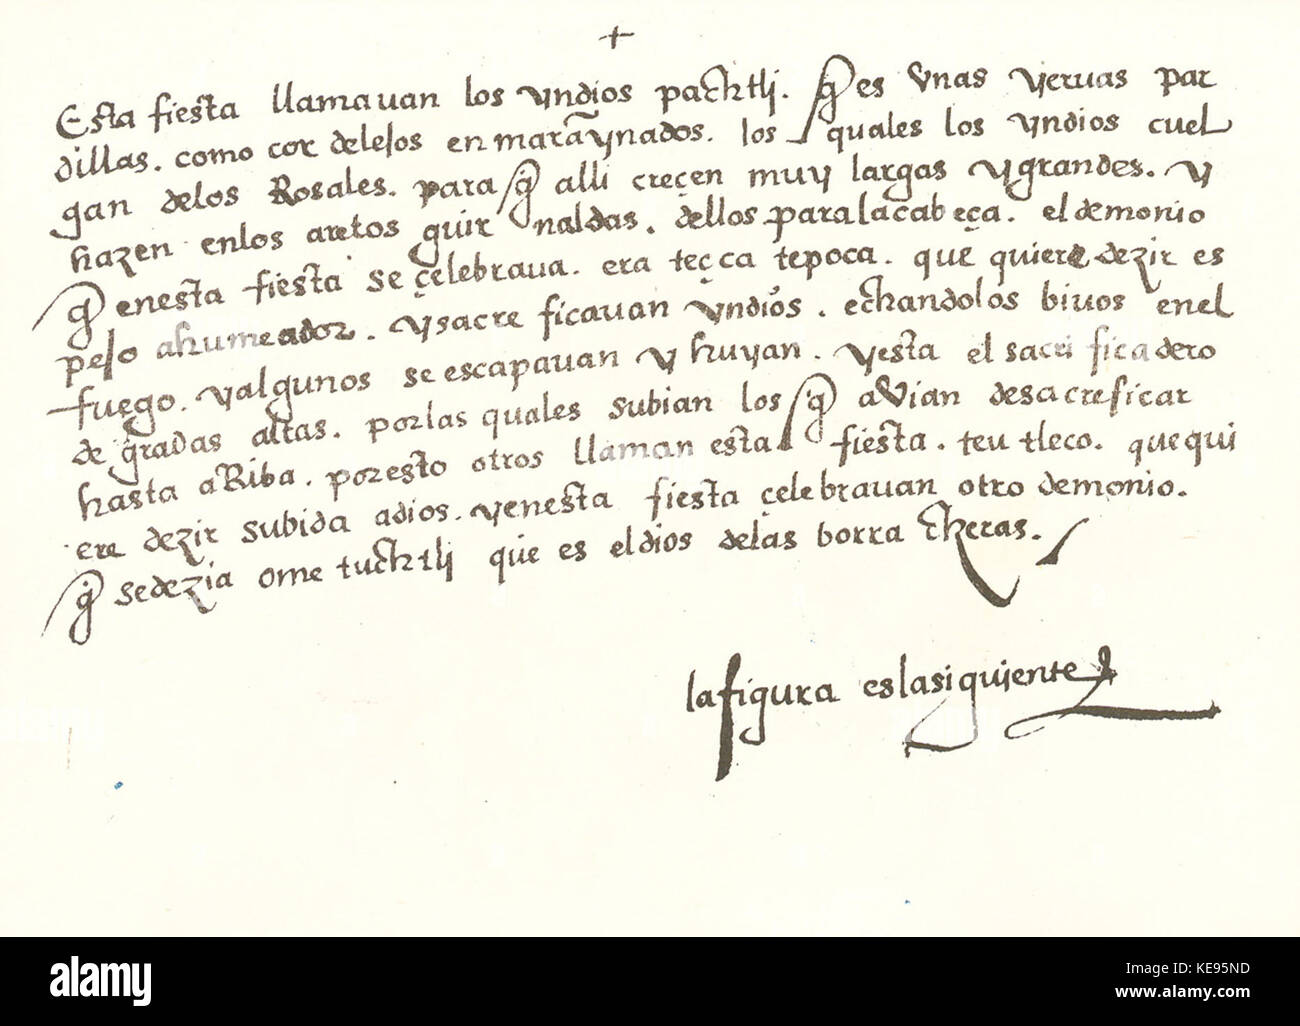 +
Esta fiesta llamavan los yndios pachtlj. q̃ es vnas yervas par
dillas. como cordelejos enmarãynados. los quales los yndios cuel
gan delos Rosales. para q̃ alli creçen muy largas ygrandes. y
hazen enlos aretos guirnaldas. dellos paralacabeça. eldemonio
q̃ enesta fiesta se çelebrava. era teçca tepoca. que quiere dezir es
pejo ahumeador. ysacreficavan yndios. echandolos bivos enel
fuego. yalgunos se escapavan y huyan. yesta el sacrificadero
de gradas altas. porlas quales subian los q̃ avian desacreficar
hasta aRiba. poresto otros llaman esta fiesta. teutleco. quequi
ere dezir subida adios. yenesta fiesta çelebravan otro demonio.
q̃ sedezia ometuchtlj que es eldios delas borracheras.
lafigura eslasiguiente
alamy
Image ID: KE95ND
www.alamy.com